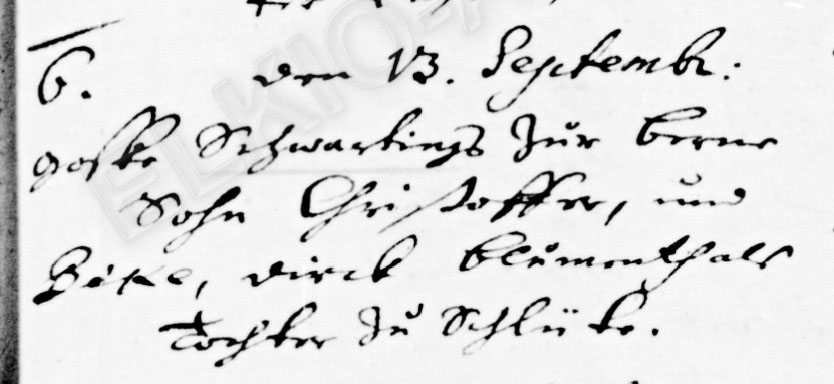 6. den 13. Septembr:
Goske Schwartings Zur berne
Sohn Christoffer, und
Beke, dirck blumenthals
Tochter zu Schlüte.